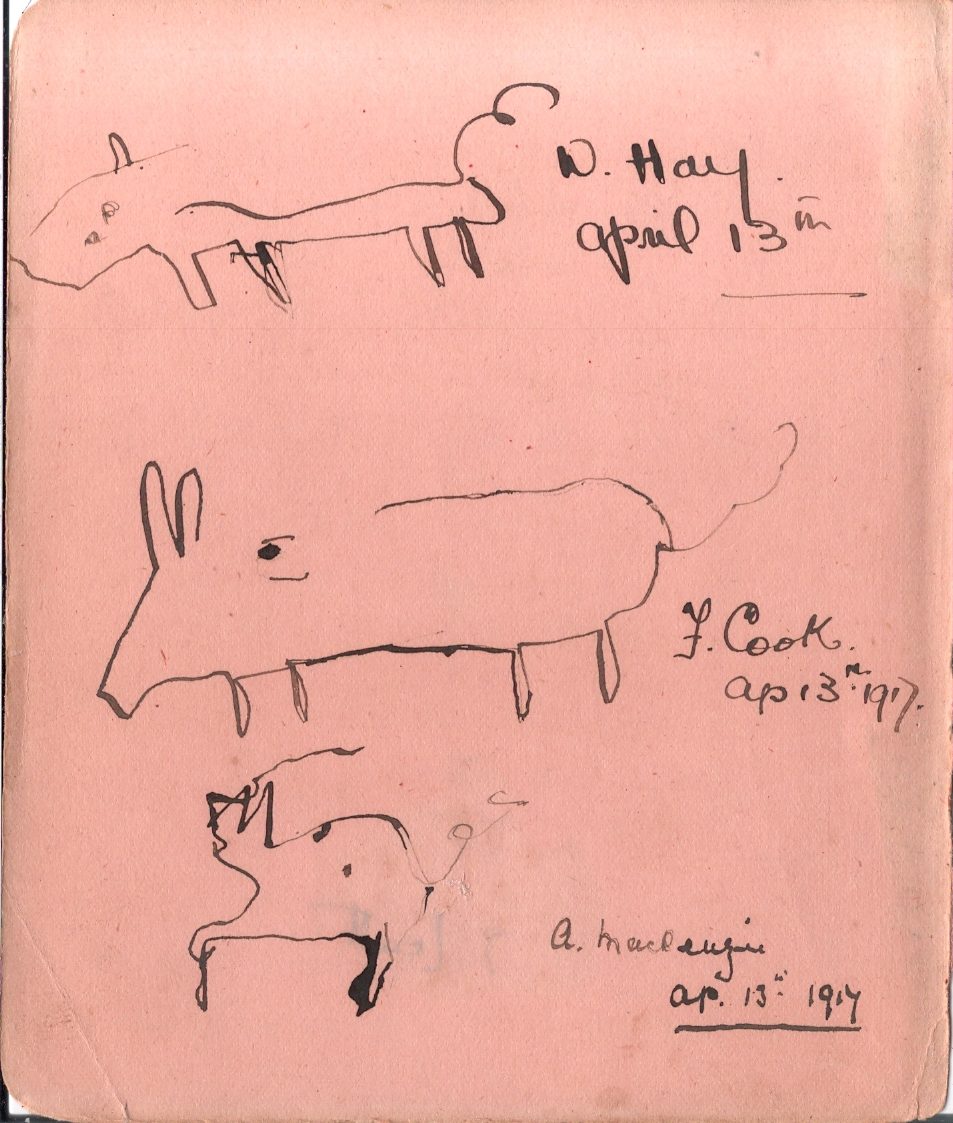 W. Hay.
April 13th
F. Cook.
Ap 13th 1917.
A. Mackenzie
Ap. 13th 1917